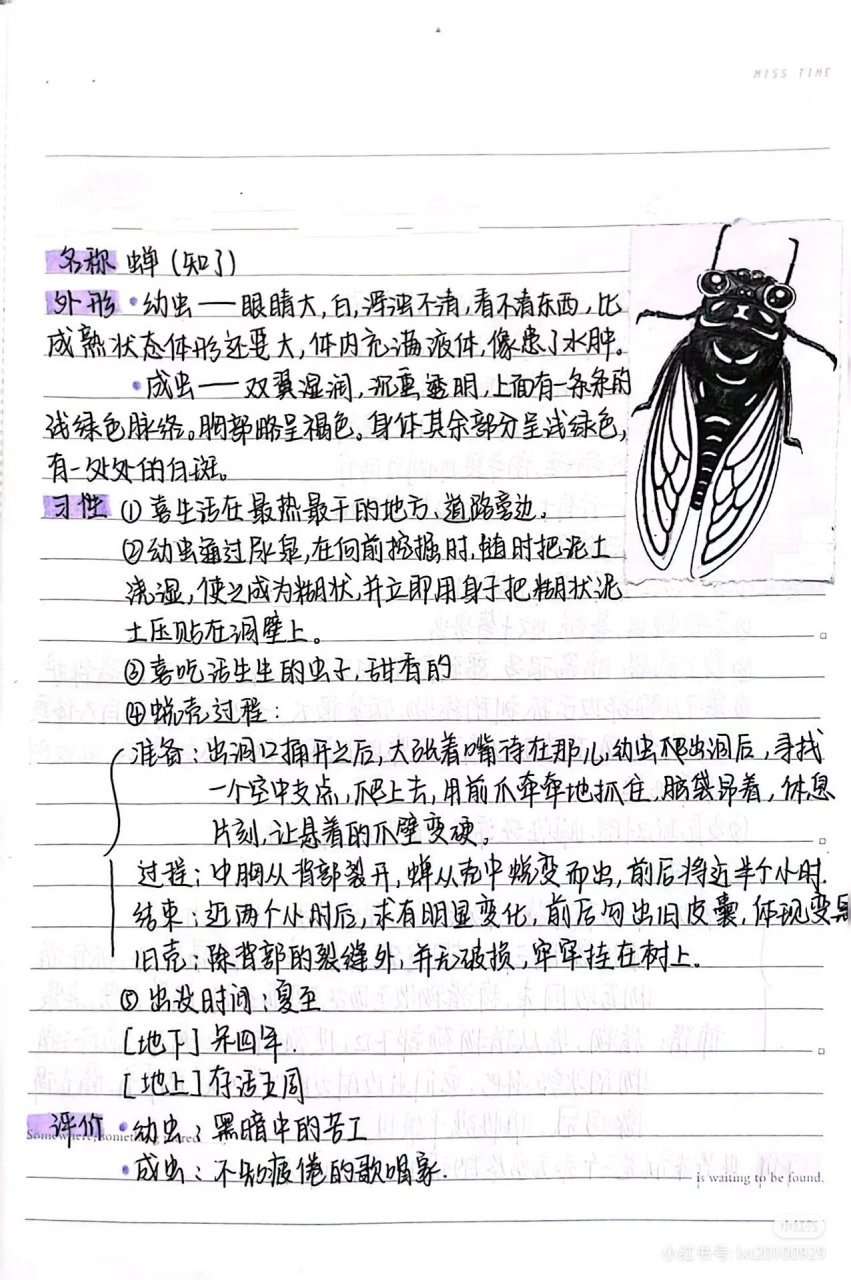 MISS TIME
名称 蝉(知了)
外形 • 幼虫——眼睛大,白,浑浊不清,看不清东西,比
成熟状态体形还要大,体内充满液体,像患了水肿。
• 成虫——双翼湿润,沉重透明,上面有一条条的
浅绿色脉络。胸部略呈褐色。身体其余部分呈浅绿色,
有一处处的白斑。
习性 ①喜生活在最热最干的地方、道路旁边。
②幼虫通过尿泉,在向前挖掘时,随时把泥土
浇湿,使之成为糊状,并立即用身子把糊状泥
土压贴在洞壁上。
③喜吃活生生的虫子,甜香的
④蜕壳过程:
准备:出洞口捅开之后,大敞着嘴待在那儿,幼虫爬出洞后,寻找
一个空中支点,爬上去,用前爪牵牵地抓住,脑袋昂着,休息
片刻,让悬着的爪臂变硬。
过程:中胸从背部裂开,蝉从壳中蜕变而出,前后将近半个小时.
结束:近两个小时后,求有明显变化,前后勾出旧皮囊,体现变
旧壳:除背部的裂缝外,并无破损,牢牢挂在树上。
⑤ 出没时间:夏至
[地下] 呆四年.
[地上] 存活五周
评价 • 幼虫:黑暗中的苦工
Somewhere, something
• 成虫:不知疲倦的歌唱家.
is waiting to be found.
小红书
小红书号: lxt20100929